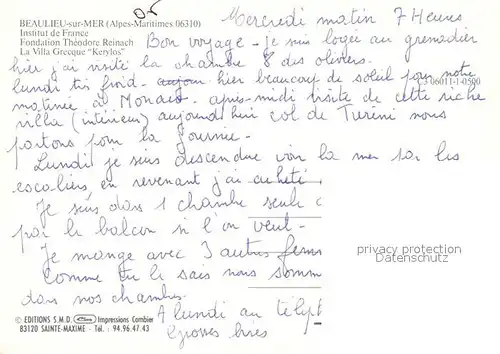 BEAULIEU-sur-MER (Alpes-Maritimes 06310)
Institut de France
Fondation Théodore Reinach
La Villa Grecque "Kerylos"
Mercredi matin 7 Heures
Bon voyage - je suis logée au grenadier
hier j'ai visité la chambre 8 des oliviers.
lundi très froid. hier beaucoup de soleil pour notre
C3 06011-1-0500
matinée à Monaco. après-midi visite de cette riche
villa (intérieur) aujourd'hui col de Turini nous
partons pour la journée.
Lundi je suis descendue voir la mer par les
escaliers, en revenant j'ai acheté
Je suis dans 1 chambre seule
par le balcon si l'on veut.
Je mange avec 3 autres femm
Comme tu le sais nous somm
dans nos chambres.
A lundi au téléph
Grosses bises
privacy protection
Datenschutz
© EDITIONS S.M.D. Impressions Combier
83120 SAINTE-MAXIME - Tél. : 94.96.47.43